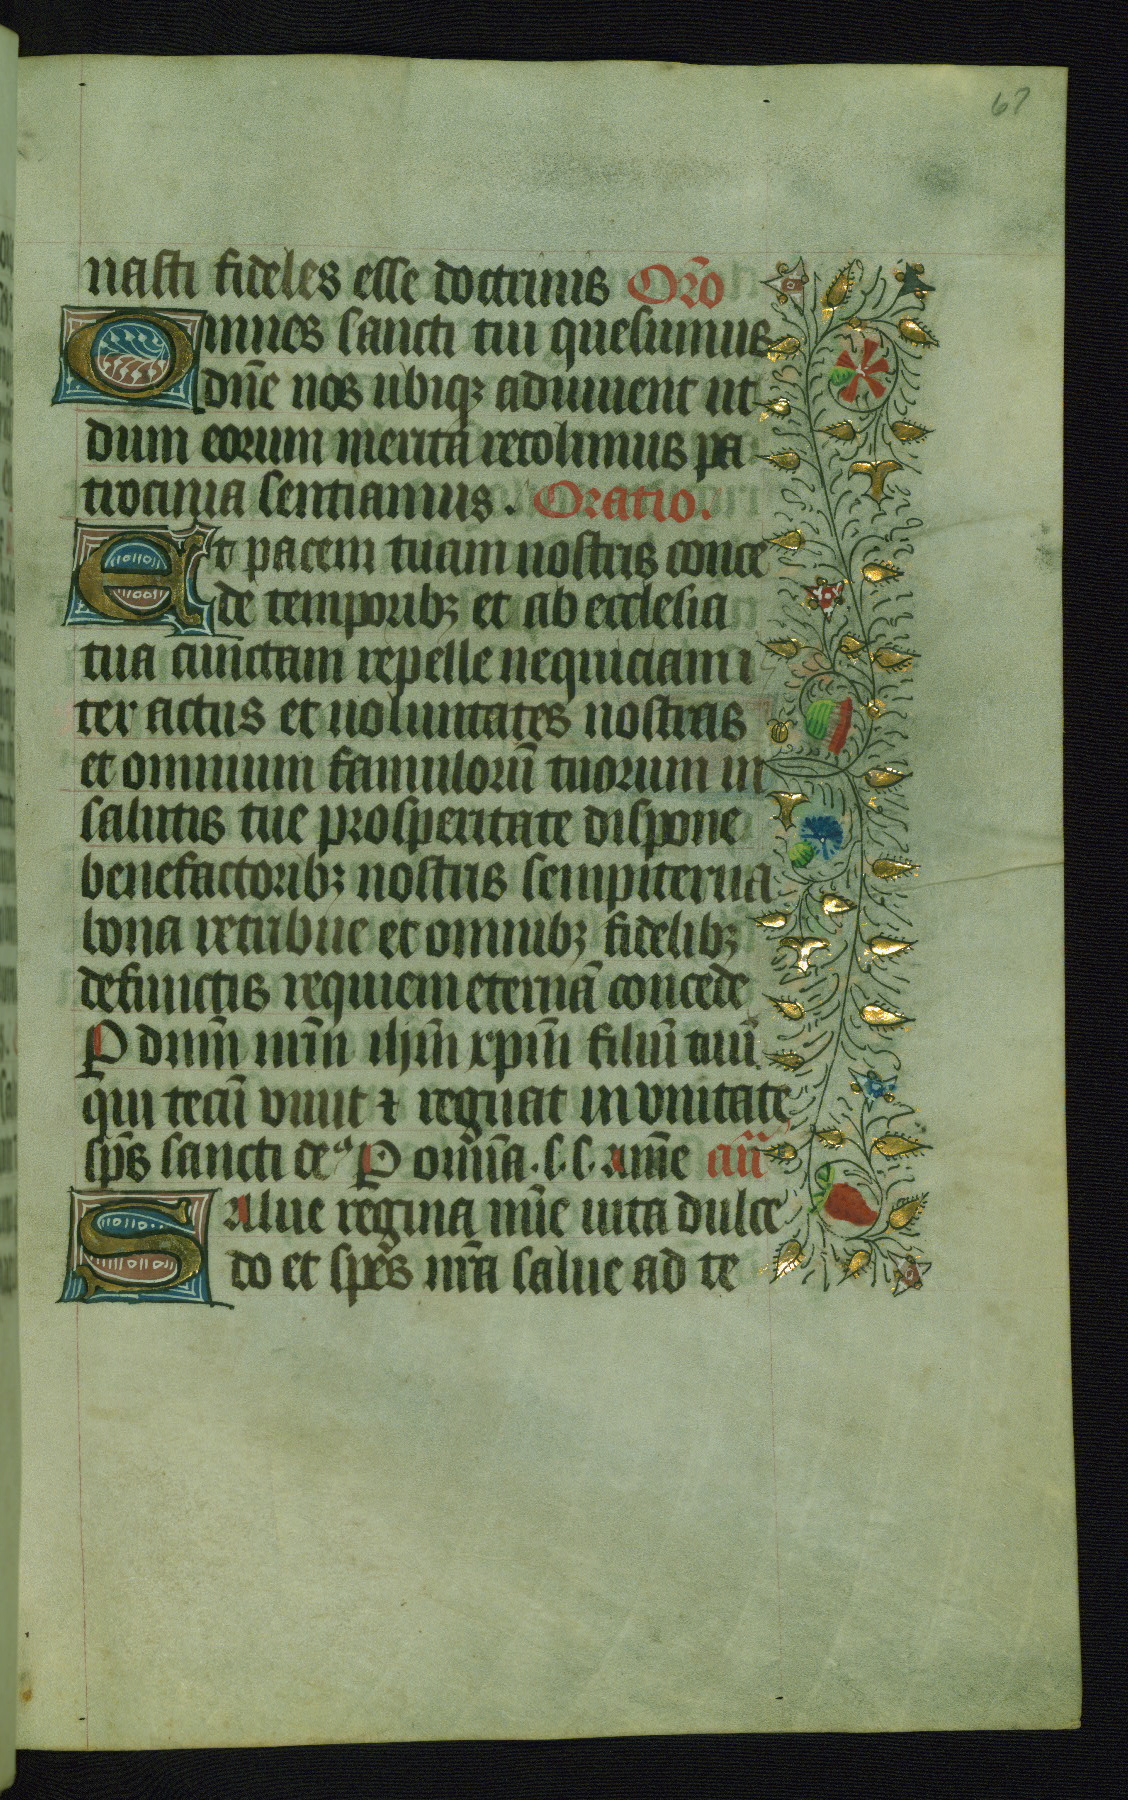 67
nasti fideles esse doctrinis Orō
Omnes sancti tui quesumus
dn̄e nos ubiqꝫ adiuuent ut
dum eorum merita recolimus pa
trocinia sentiamus. Oratio.
Et pacem tuam nostris conce
de temporibꝫ et ab ecclesia
tua cunctam repelle nequiciam i
ter actus et uoluntates nostras
et omnium famulorū tuorum in
salutis tue prosperitate dispone
benefactoribꝫ nostris sempiterna
bona retribue et omnibꝫ fidelibꝫ
defunctis requiem eternā concede
P dnm̄ nrm̄ ihm̄ xpm̄ filiū tuū
qui tecū viuit ⁊ regnat in vnitate
sp̄s sancti de⁹ P om̄ia. s. s. Amē an̄
Salue regina mīe uita dulce
do et spes nr̄a salue ad te